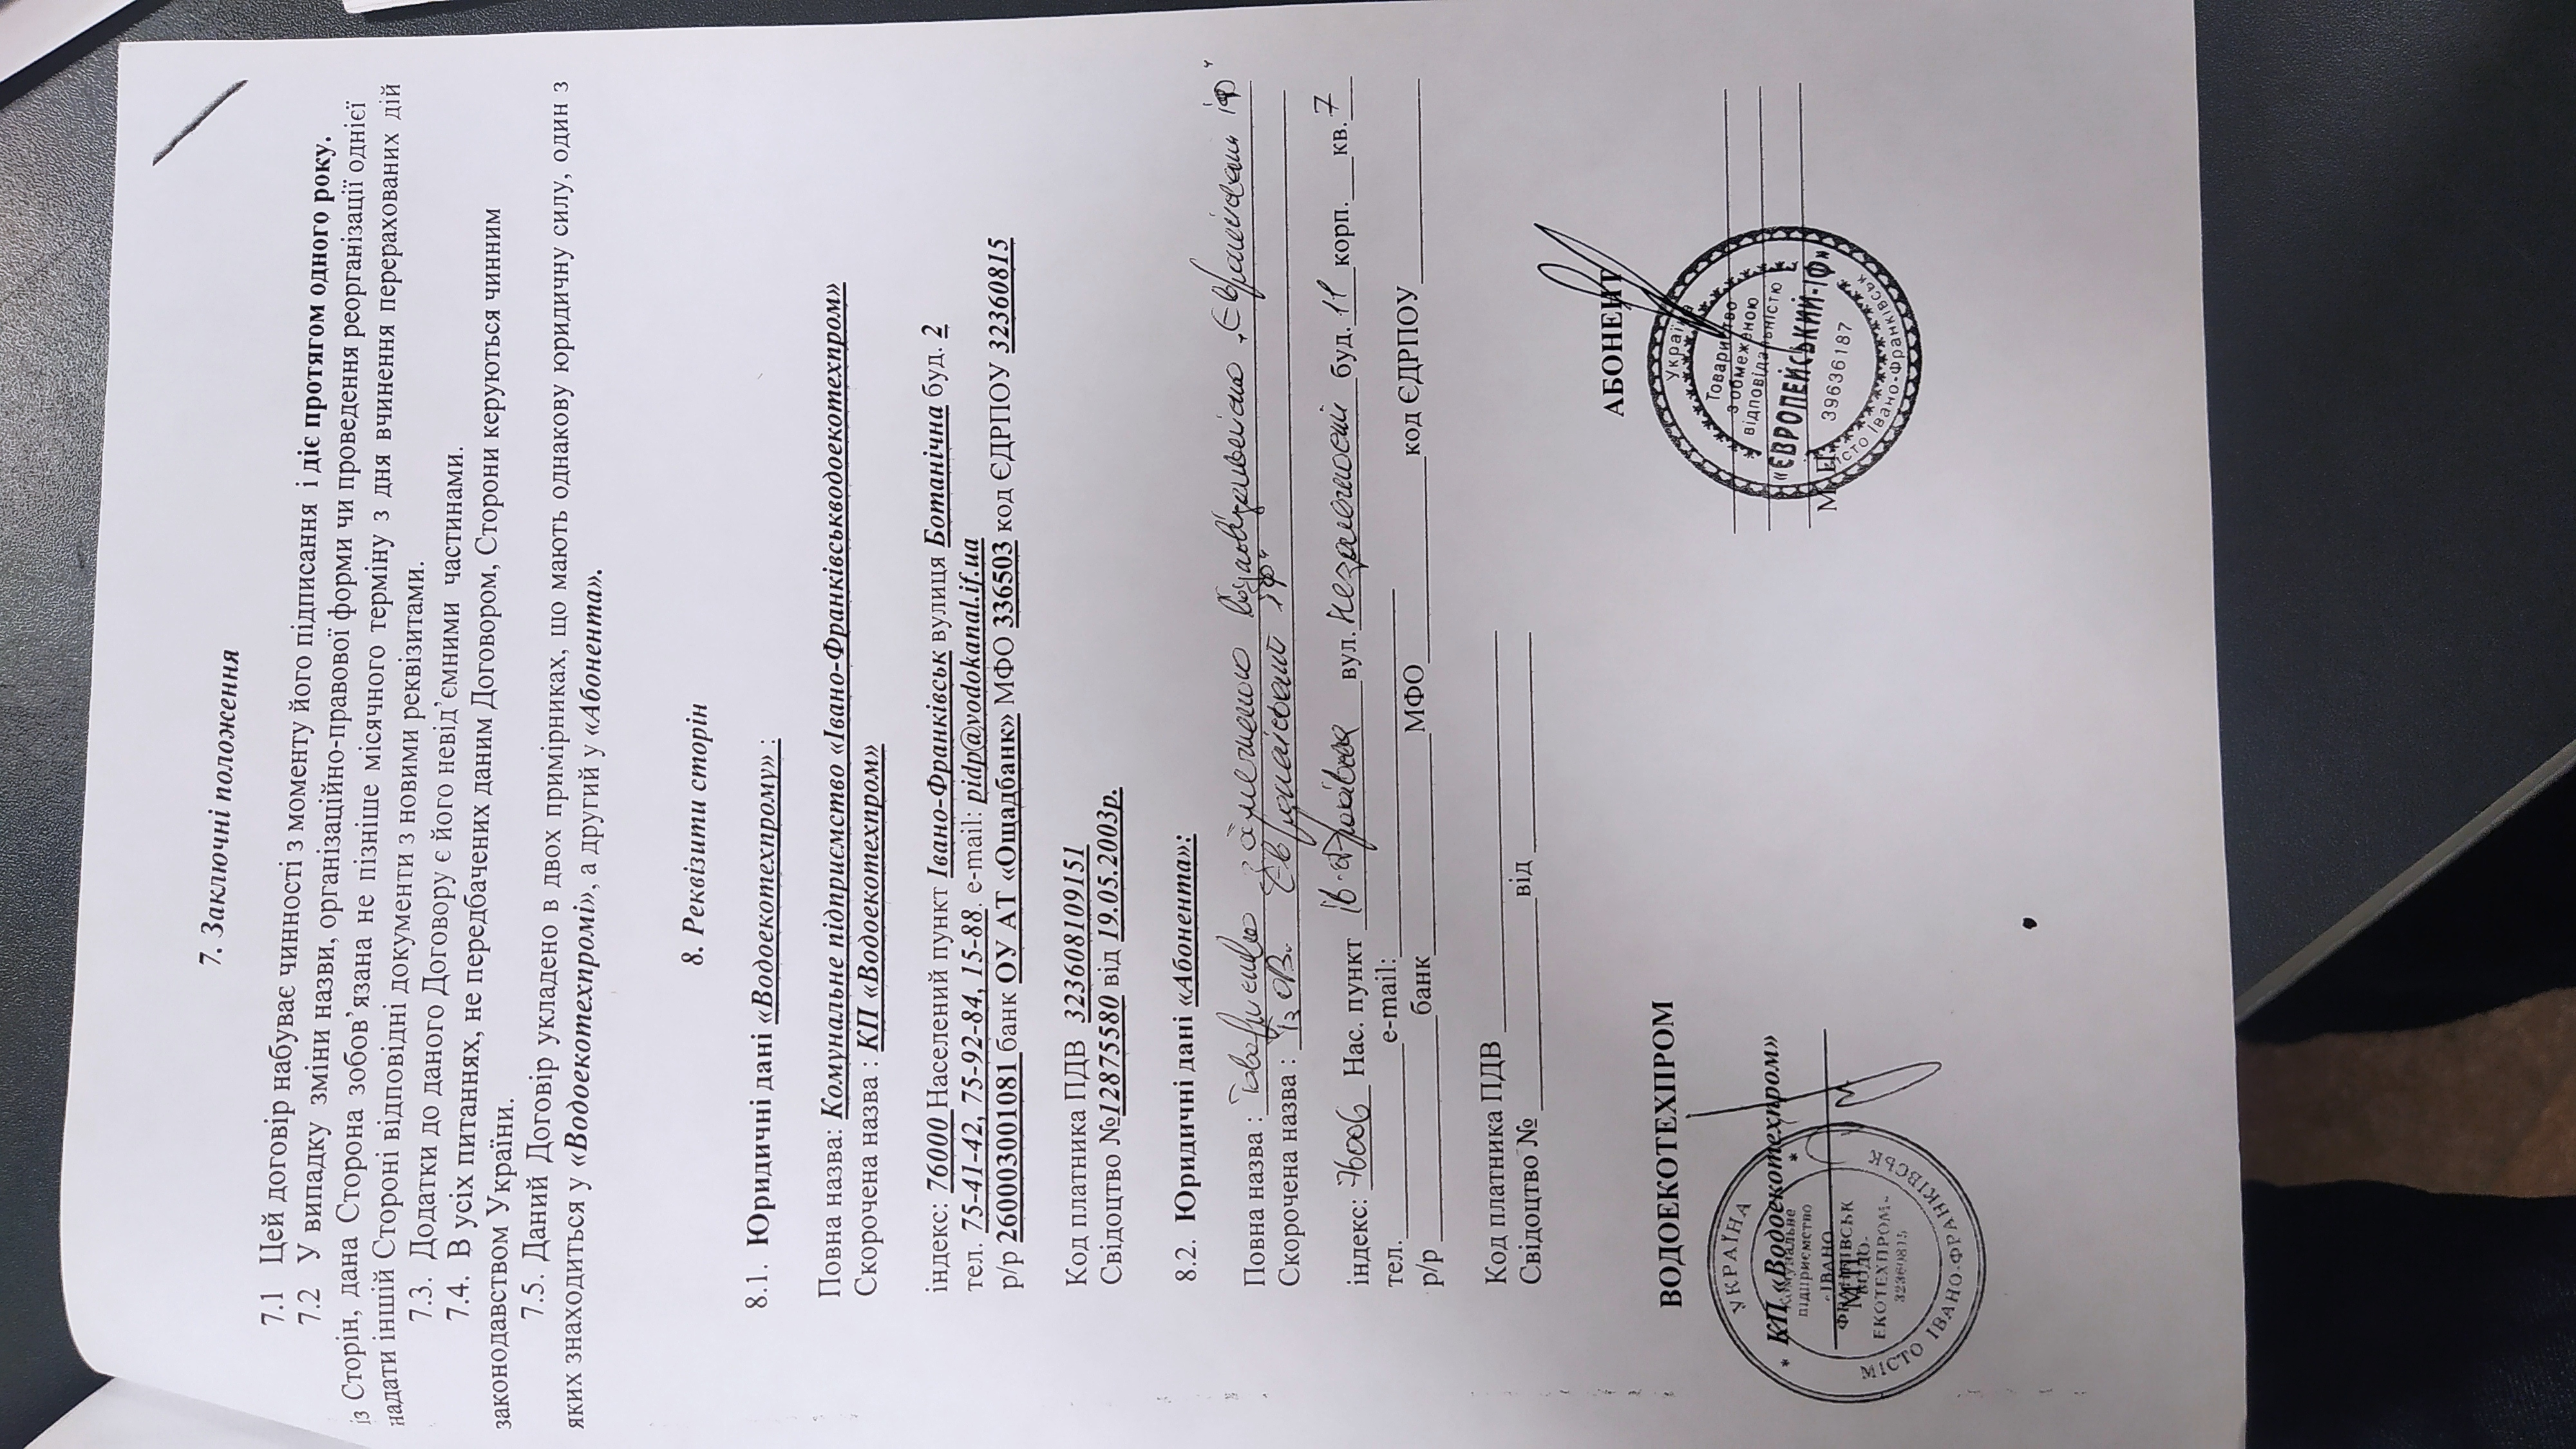 7. Заключні положення
7.1 Цей договір набуває чинності з моменту його підписання і діє протягом одного року.
7.2 У випадку зміни назви, організаційно-правової форми чи проведення реорганізації однієї
із Сторін, дана Сторона зобов’язана не пізніше місячного терміну з дня вчинення перерахованих дій
надати іншій Стороні відповідні документи з новими реквізитами.
7.3. Додатки до даного Договору є його невід’ємними частинами.
7.4. В усіх питаннях, не передбачених даним Договором, Сторони керуються чинним
законодавством України.
7.5. Даний Договір укладено в двох примірниках, що мають однакову юридичну силу, один з
яких знаходиться у «Водоекотехпромі», а другий у «Абонента».
8. Реквізити сторін
8.1. Юридичні дані «Водоекотехпрому» :
Повна назва: Комунальне підприємство «Івано-Франківськводоекотехпром»
Скорочена назва : КП «Водоекотехпром»
індекс: 76000 Населений пункт Івано-Франківськ вулиця Ботанічна буд. 2
тел. 75-41-42, 75-92-84, 15-88. e-mail: pidp@vodokanal.if.ua
р/р 260003001081 банк ОУ АТ «Ощадбанк» МФО 336503 код ЄДРПОУ 32360815
Код платника ПДВ 323608109151
Свідоцтво №12875580 від 19.05.2003р.
8.2. Юридичні дані «Абонента»:
Повна назва : Товариство з обмеженою відповідальністю „Європейський ІФ"
Скорочена назва : ТзОВ. Європейський ІФ"
індекс: 76006 Нас. пункт Ів-Франківськ вул. Незалежності буд. 11 корп.___ кв. 7
тел.____________ e-mail:____________
р/р ____________ банк____________ МФО____________ код ЄДРПОУ____________
Код платника ПДВ ____________
Свідоцтво № ____________ від ____________
АБОНЕНТ
ВОДОЕКОТЕХПРОМ
КП «Водоекотехпром»
М.П.
УКРАЇНА
Комунальне
підприємство
«ІВАНО
ФРАНКІВСЬК
ВОДО-
ЕКОТЕХПРОМ»
32360815
МІСТО ІВАНО-ФРАНКІВСЬК
Україна
Товариство
з обмеженою
відповідальністю
«ЄВРОПЕЙСЬКИЙ-ІФ»
39636187
місто Івано-Франківськ
М.П.